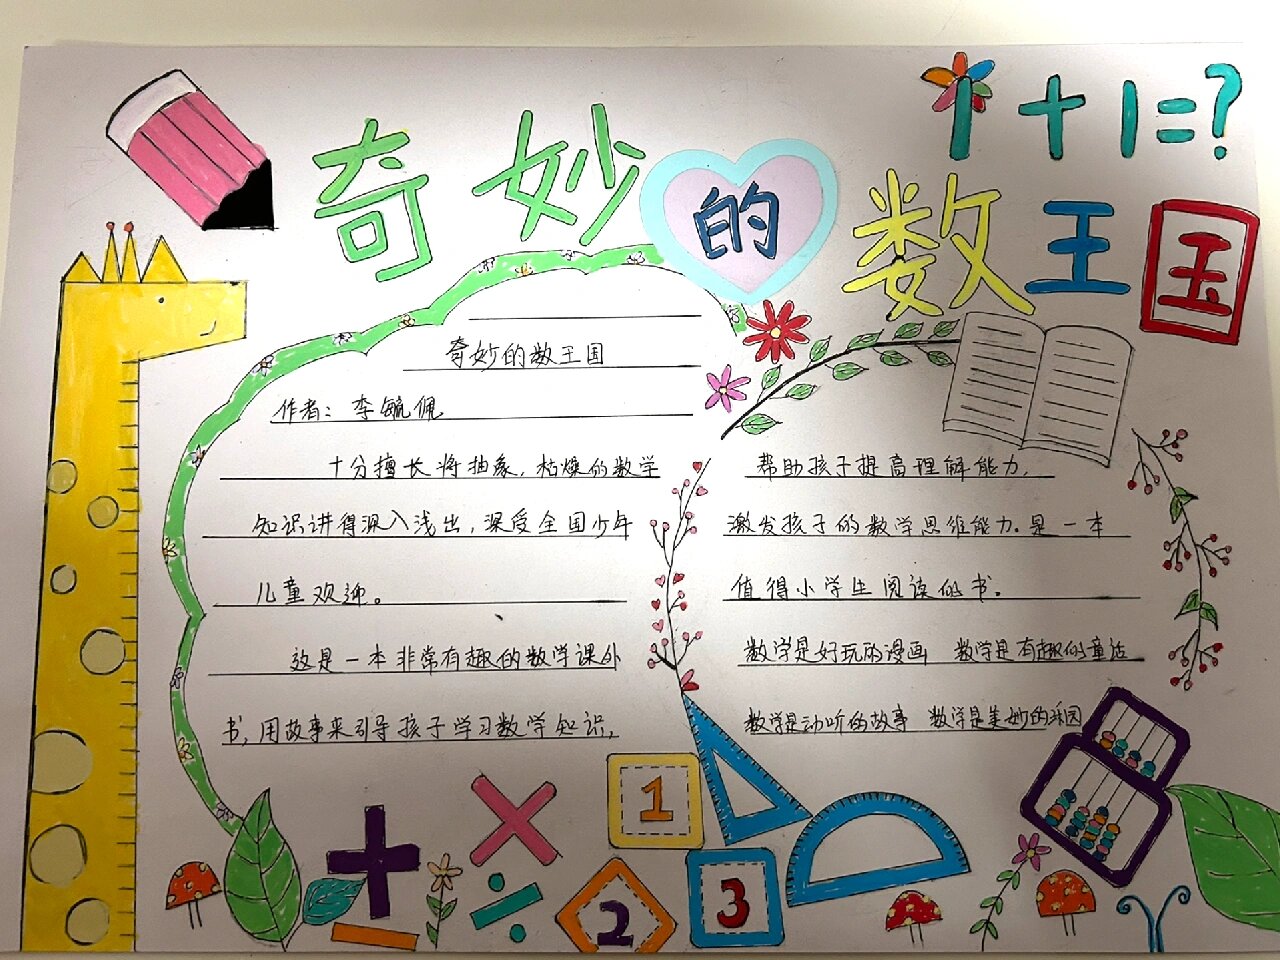 1+1=?
奇妙的数王国
奇妙的数王国
作者：李毓佩
十分擅长将抽象，枯燥的数学
知识讲得深入浅出，深受全国少年
儿童欢迎。
这是一本非常有趣的数学课外
书，用故事来引导孩子学习数学知识，
帮助孩子提高理解能力，
激发孩子的数学思维能力。是一本
值得小学生阅读的书。
数学是好玩的漫画 数学是有趣的童话
数学是动听的故事 数学是美妙的乐园
+ × ÷ −
1
2
3